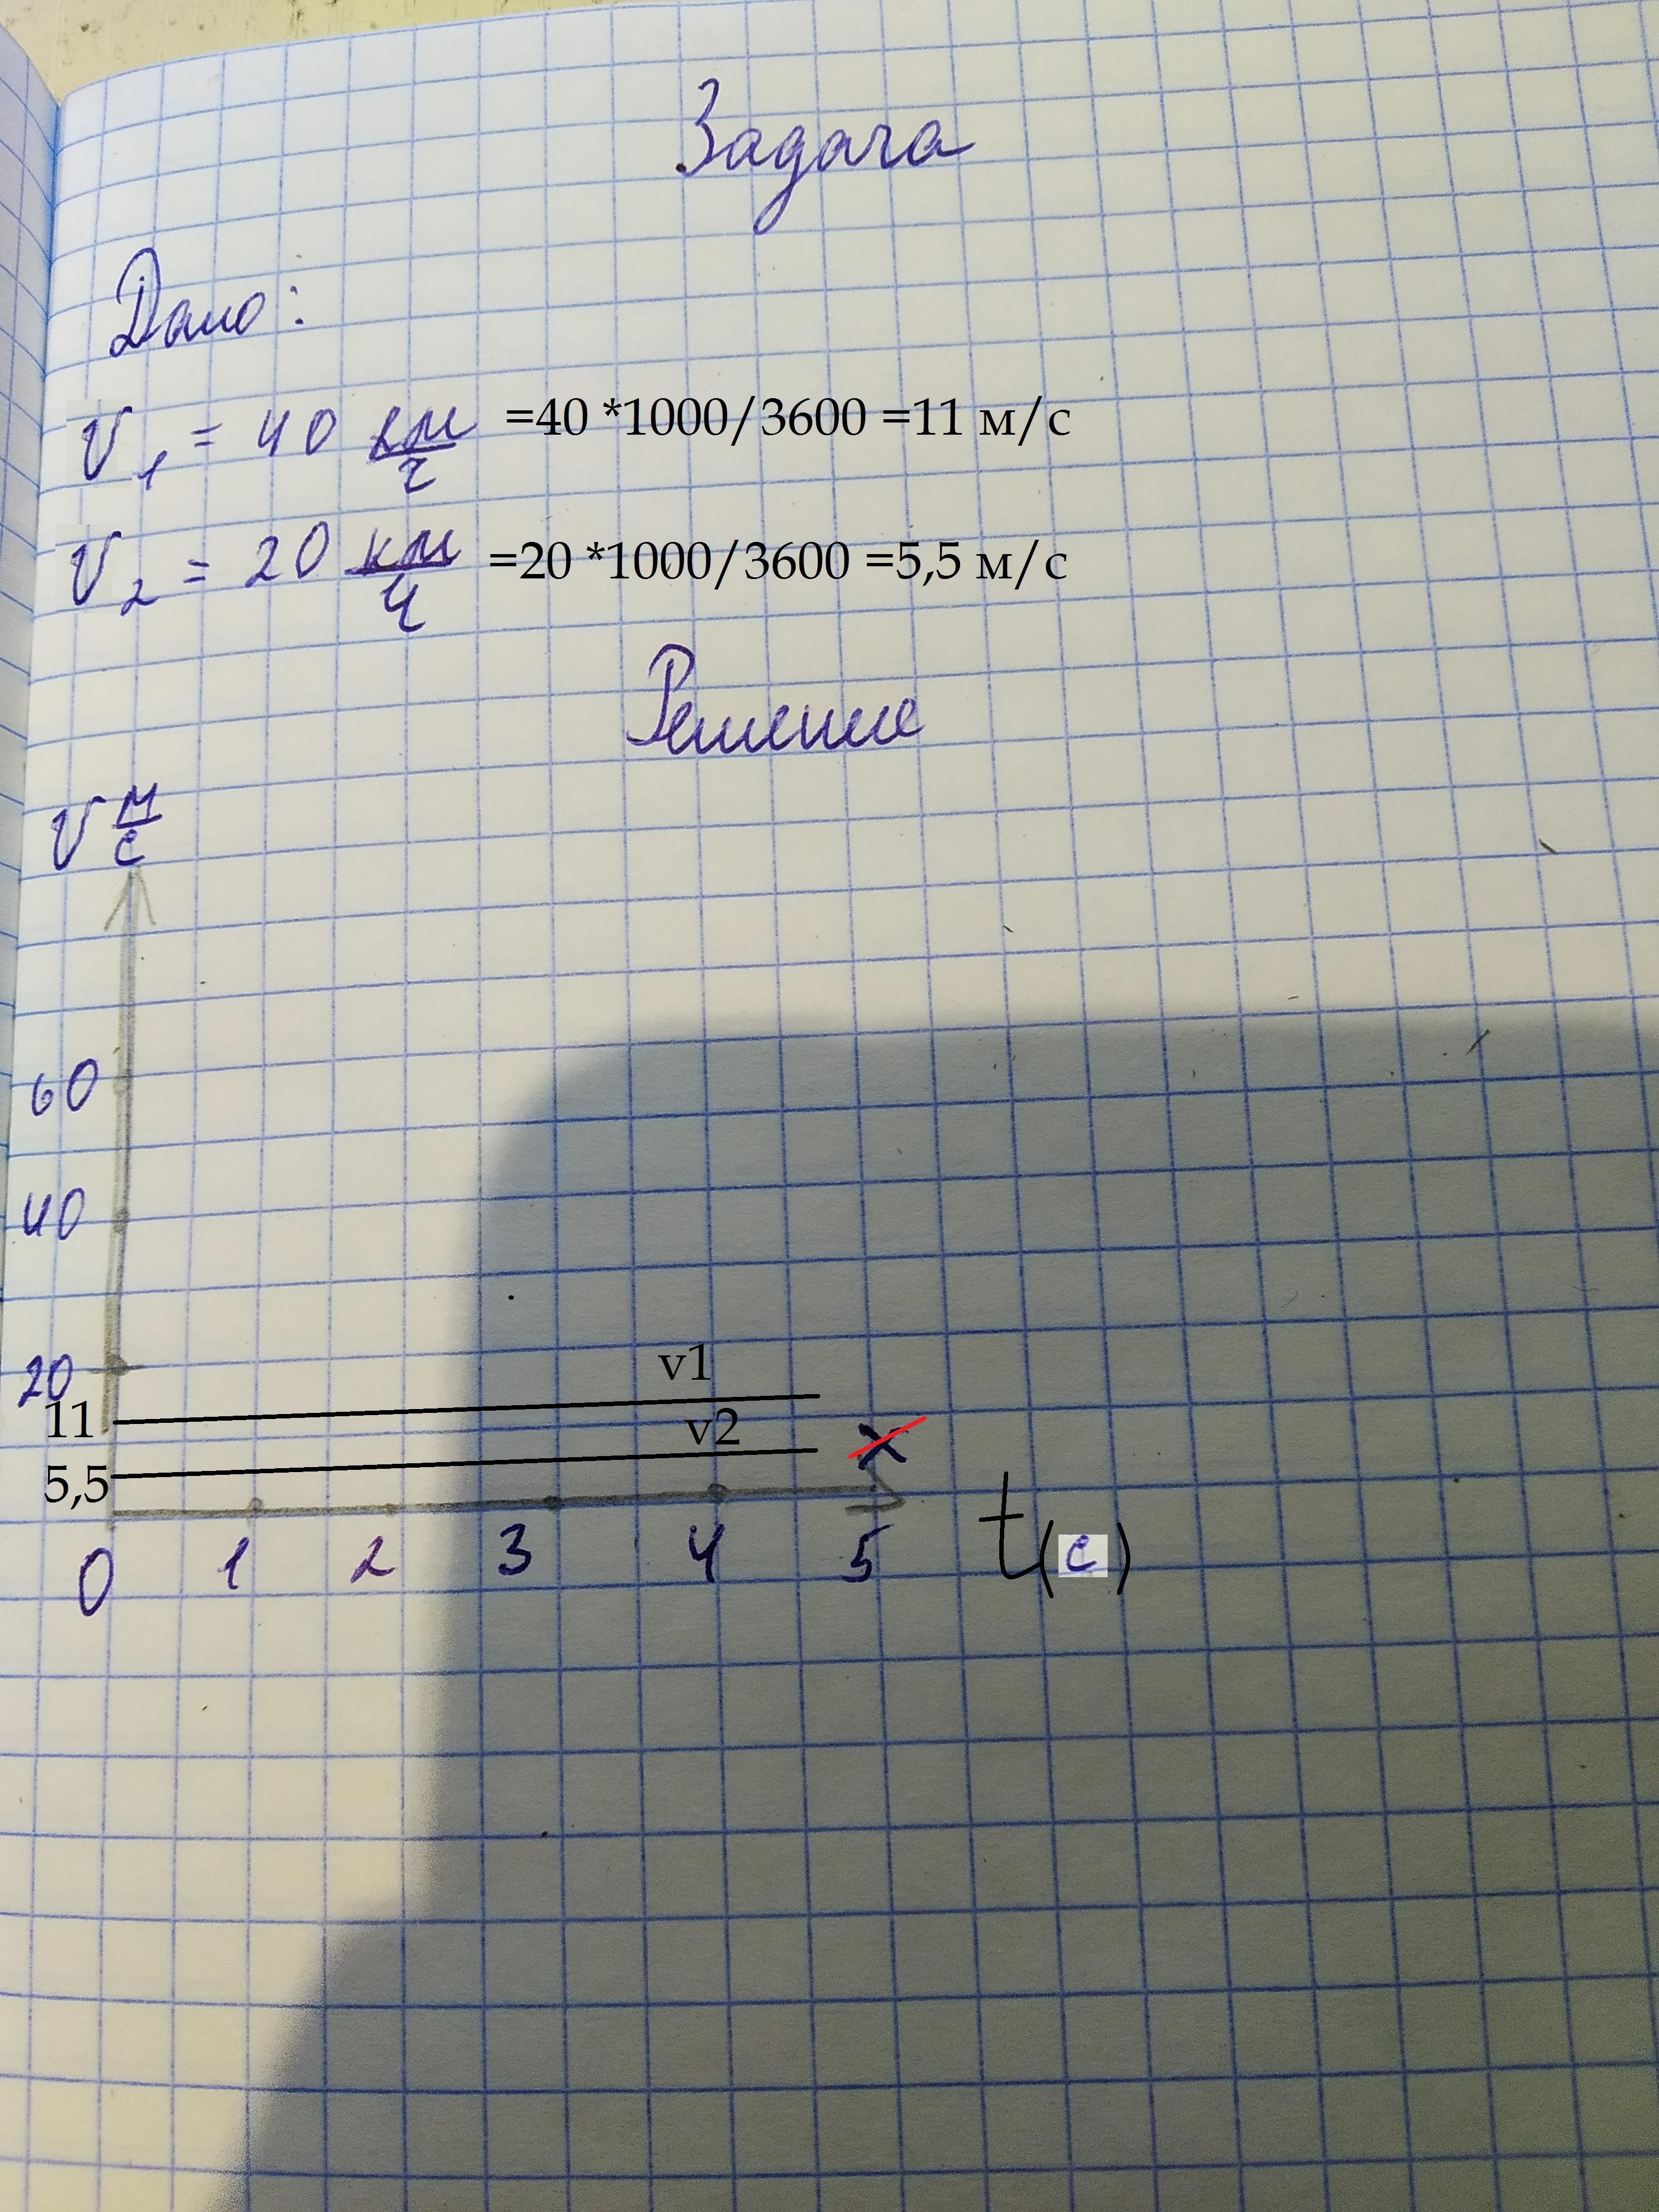 Задача
Дано:
V₁ = 40 км/ч =40 *1000/3600 =11 м/с
V₂ = 20 км/ч =20 *1000/3600 =5,5 м/с
Решение
V м/с
60
40
20
v1
11
v2
x
5,5
0 1 2 3 4 5 t(c)